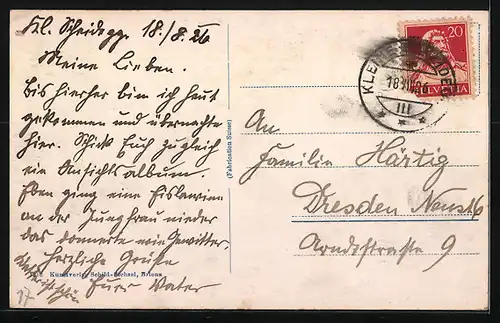 Kl. Scheidegg. 18./8. 26
Meine Lieben.
Bis hierher bin ich heut
gekommen und übernachte
hier. Schick Euch zugleich
ein Ansichtsalbum.
Eben ging eine Eislawine
an der Jungfrau nieder
das donnerte wie Gewitter,
Herzliche Grüße
Euer Vater
17
Kunstverlag Schild-Bichsel, Brienz
(Fabrication Suisse)
20
HELVETIA
KLEINE SCHEIDEGG
18.VIII.26
III
An
Familie Härtig
Dresden Neust.
Arndtstraße 9